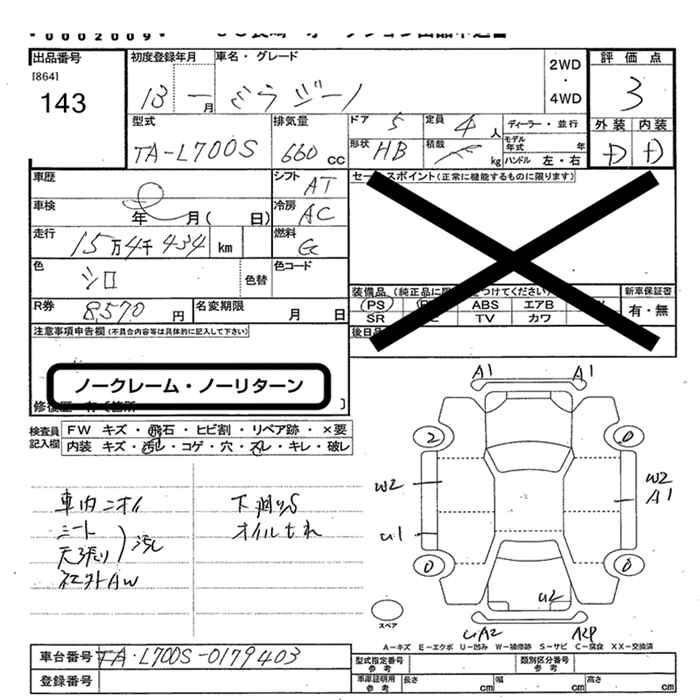 *0002009*
出品番号 初度登録年月 車名・グレード 2WD・4WD 評価点
[864]
143 13 一月 ミラジーノ 3
型式 排気量 ドア 5 定員 4人 ディーラー・並行 外装 内装
TA-L700S 660cc 形状 HB 積載 kg モデル年式 年 ハンドル 左・右 D D
車歴 シフト AT セールスポイント(正常に機能するものに限ります)
車検 年 月( 日) 冷房 AC
走行 15万4千434 km 燃料 G
色 シロ 色替 色コード
装備品(純正品に限 つけてください) 新車保証書
R券 8,570円 名変期限 月 日 PS ABS エアB 有・無
SR TV カワ
注意事項申告欄(不具合内容等は具体的に記入して下さい) 後日品
ノークレーム・ノーリターン
検査員記入欄 FW キズ・飛石・ヒビ割・リペア跡・×要
内装 キズ・汚れ・コゲ・穴・スレ・キレ・破レ
A1 A1
2 0
W2 W2
A1
U1
0 0
U2
UA2
車内ニオイ 下廻りS
シート オイルもれ
天張り 汚れ
社外AW
スペア
A-キズ E-エクボ U-凹み W-補修跡 S-サビ C-腐食 XX-交換済
車台番号 TA-L700S-0179403 型式指定番号 参考 類別区分番号 参考
登録番号 車庫証明用 参考 長さ cm 幅 cm 高さ cm